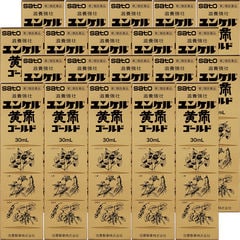 sato
滋養強壮
ユンケル
黄帝
ゴールド
30mL
佐藤製薬株式会社